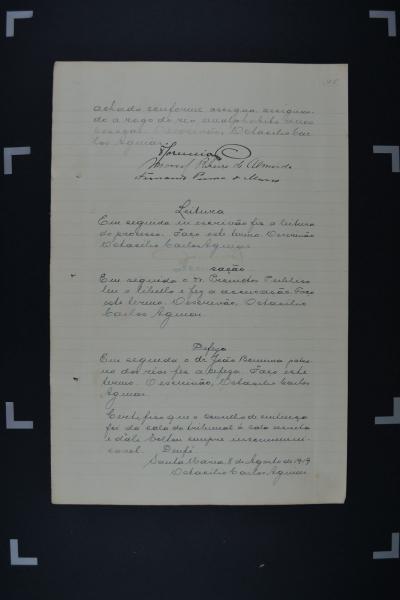 achado conforme assigna, assignan-
do a rogo do reo analphabeto
Escrivão Octacilio Car-
los Aguiar.
Manoel Ribeiro de Almeida
Fernando
Leitura
Em seguida eu escrivão fiz a leitura
do processo. Faço este termo. O escrivão
Octacilio Carlos Aguiar
Accusação
Em seguida o dr. Promotor Publico
leu o libello e fez a accusação. Faço
este termo. O escrivão, Octacilio
Carlos Aguiar.
Defeza
Em seguida o dr. João Bonuma patro-
no dos réos fez a defeza. Faço este
termo. O escrivão, Octacilio Carlos
Aguiar
Certifico que o conselho de sentença
foi da sala do tribunal á sala secreta
e dali voltou sempre incommuni-
cavel. Dou fé
Santa Maria, 8 de Agosto de 1919
Octacilio Carlos Aguiar